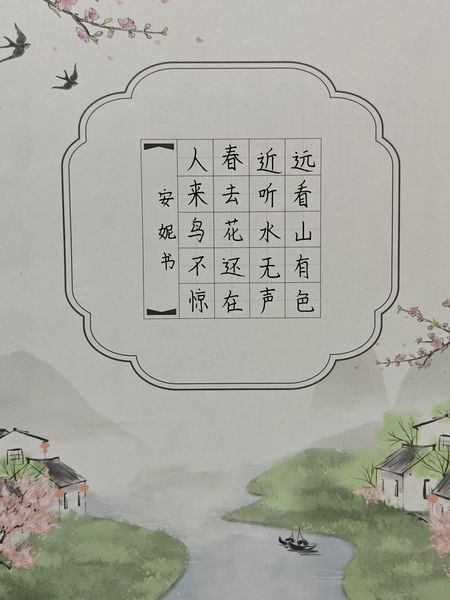 远看山有色
近听水无声
春去花还在
人来鸟不惊
安妮书